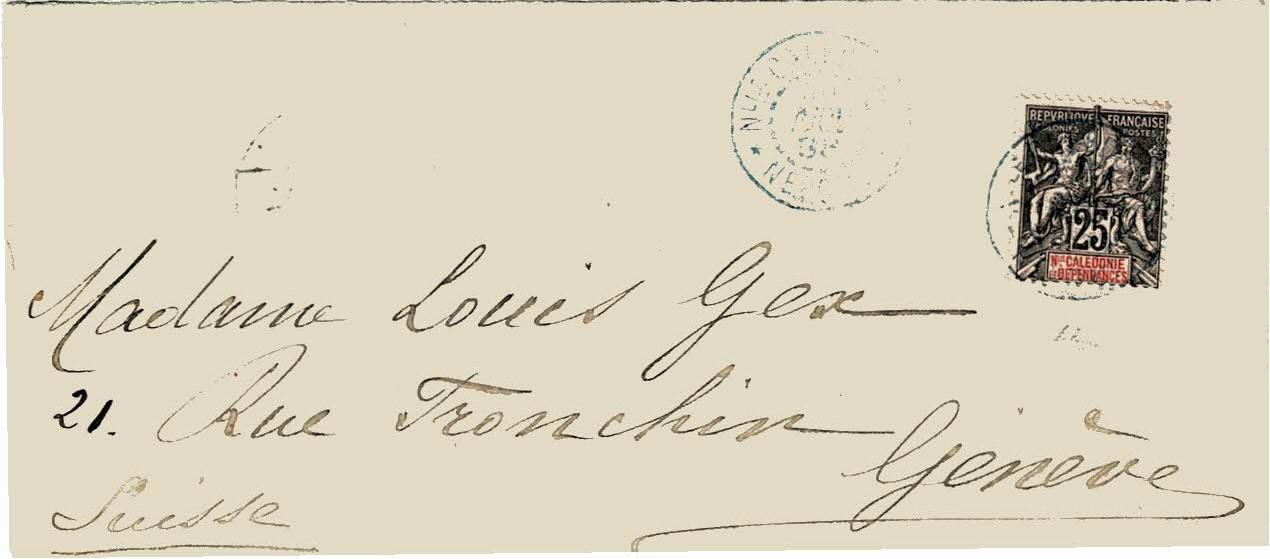 REPVBLIQVE FRANÇAISE
COLONIES POSTES
25
Nlle CALÉDONIE
ET DÉPENDANCES
Madame Louis Gex
21. Rue Tronchin
Genève
Suisse